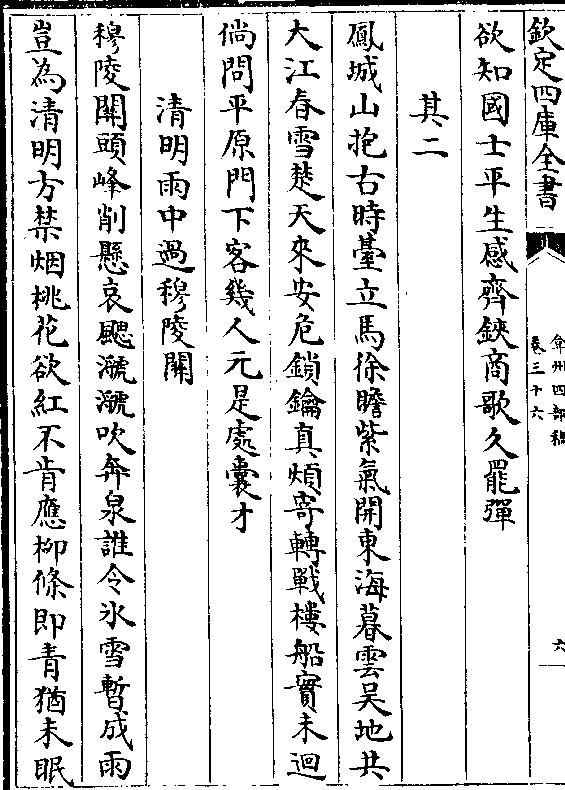 欽定四庫全書
弇州四部稿
卷三十六
六
欲知國士平生感齊鋏商歌久罷彈
其二
鳳城山抱古時臺立馬徐瞻紫氣開東海暮雲吴地共
大江春雪楚天來安危鎖鑰真煩寄轉戰樓船實未迴
倘問平原門下客幾人元是處囊才
清明雨中過穆陵關
穆陵關頭峰削懸哀颸㶁㶁吹奔泉誰令氷雪暫成雨
豈為清明方禁烟桃花欲紅不肯應柳條即青猶未眠